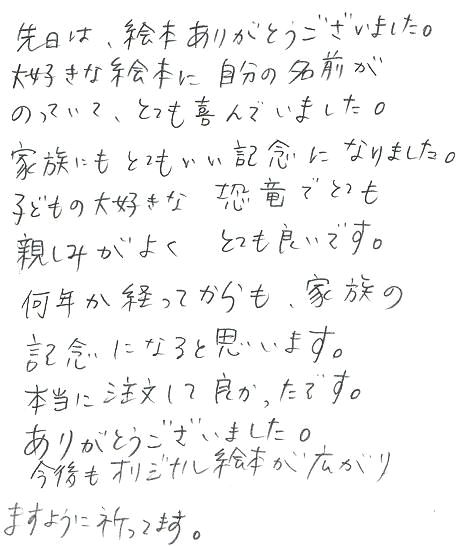 先日は、絵本ありがとうございました。
大好きな絵本に自分の名前が
のっていて、とても喜んでいました。
家族にもとてもいい記念になりました。
子どもの大好きな 恐竜でとても
親しみがよく とても良いです。
何年か経ってからも、家族の
記念になると思います。
本当に注文して良かったです。
ありがとうございました。
今後もオリジナル絵本が広がり
ますように祈ってます。